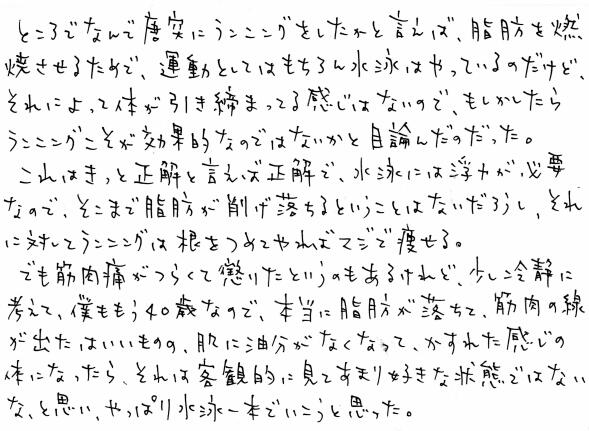 ところでなんで唐突にランニングをしたかと言えば、脂肪を燃
焼させるためで、運動としてはもちろん水泳はやっているのだけど、
それによって体が引き締まってる感じはないので、もしかしたら
ランニングこそが効果的なのではないかと目論んだのだった。
これはきっと正解と言えば正解で、水泳には浮力が必要
なので、そこまで脂肪が削げ落ちるということはないだろうし、それ
に対してランニングは根をつめてやればマジで痩せる。
でも筋肉痛がつらくて懲りたというのもあるけれど、少し冷静に
考えて、僕ももう40歳なので、本当に脂肪が落ちて、筋肉の線
が出たはいいものの、肌に油分がなくなって、かすれた感じの
体になったら、それは客観的に見てあまり好きな状態ではない
な、と思い、やっぱり水泳一本でいこうと思った。